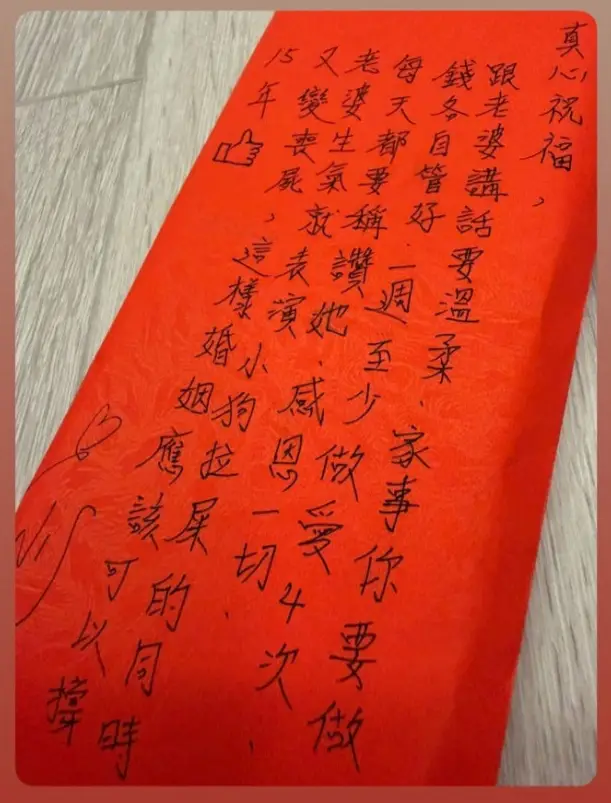 真心祝福，
跟老婆講話要溫柔、家事你要做
錢各自管好、一週至少做愛4次、
每天都要稱讚她、感恩一切、
老婆生氣就表演小狗拉屎的同時
又變喪屍，這樣婚姻應該可以撐
15年